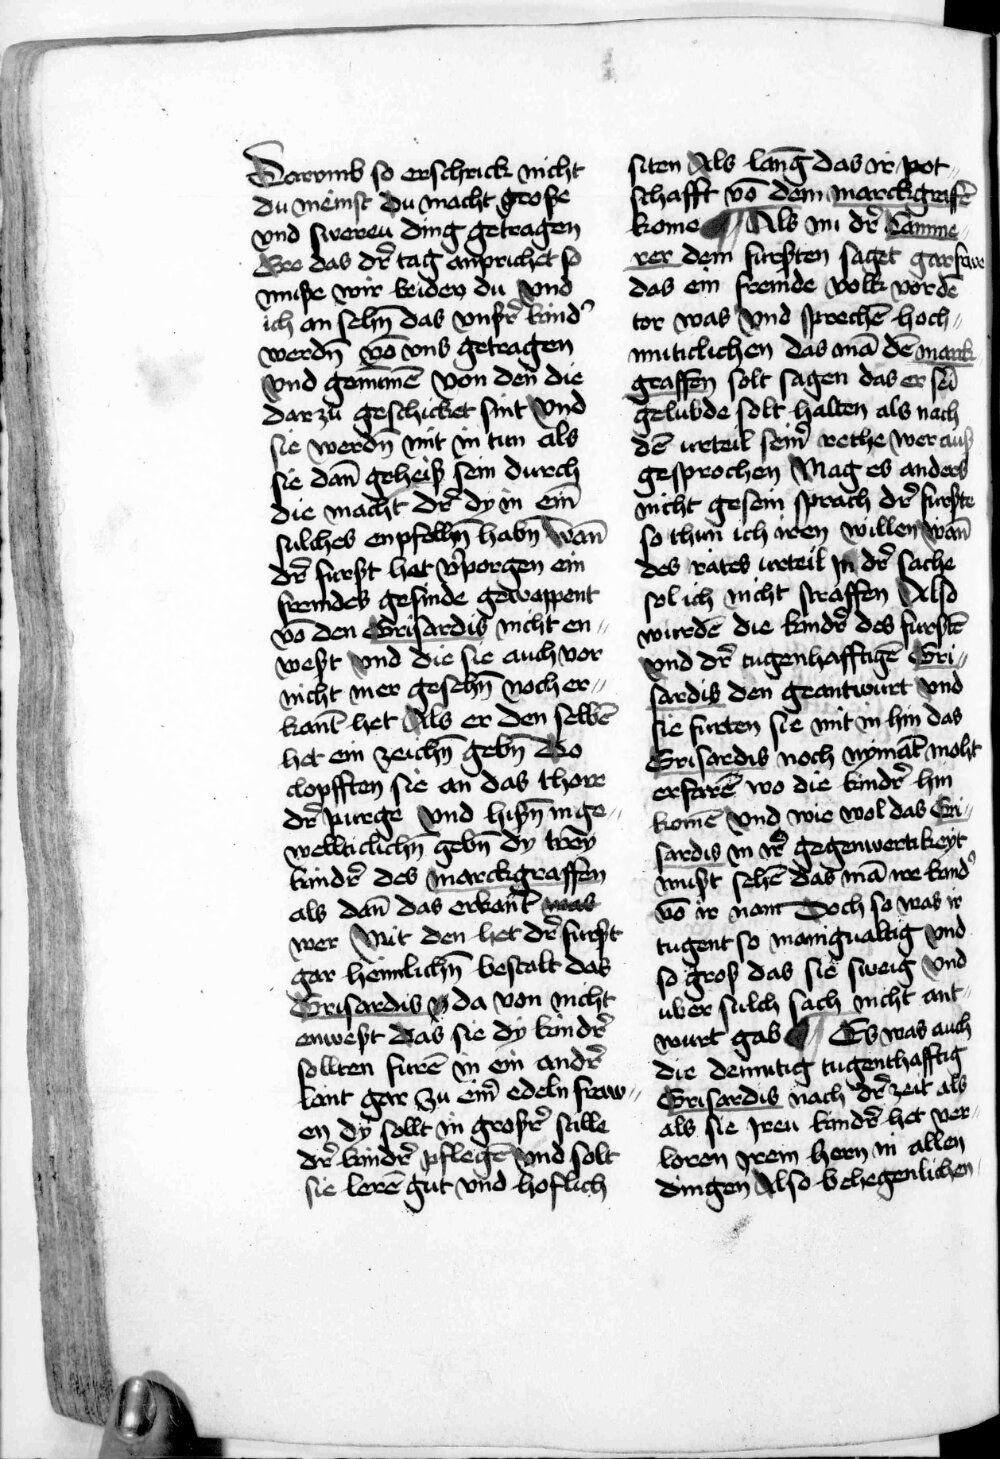 Darvmb so erschrick nicht
du meinst du macht große
vnd sweren ding getragen
Wee das dr̄ tag anprichet so
muße wir beiden du vnd
ich an sehn̄ das vnsr̄ kind'
werdn̄ vō vns getragen
vnd genn̄mē von den die
darzu geschicket sint vnd
sie werdn̄ mit in tun als
sie dan̄ geheiß sein durch
die macht dr̄ dy in eim̄
sulches enpfolhn̄ habn̄ wan̄
dr̄ furst het v'porgen ein
fremdes gesinde gewappent
vō den Grisardis nicht en〃
west vnd die sie auch vor
nicht mer gesehn̄ noch er〃
kant het Als er den selbē
het ein zeichn̄ gebn̄ Do
clopfften sie an das thore
dr̄ purge vnd hisn̄ in ge〃
weltiiclichn̄ gebn̄ dy trey
kindr̄ des marckgraffen
als dan̄ das erkant was
wer Mit den het dr̄ furst
gar heimlichn̄ bestalt das
Grisardis da von nicht
enwest das sie dy kindr̄
sollten furē in ein andr̄
lant gar zu eim̄ edeln fraw〃
en dy sollt in großr̄ stille
dr̄ kindr̄ pflegē vnd solt
sie lerē gut vnd hoflich
siten Als lang das ir pot〃
schafft vō dem marckgrafē
kome ¶ Als nu dr̄ Camme〃
rer dem fursten saget gar frwe
das ein fremde volk vor dē
tor was vnd sprechē hoch〃
muticlichen das mā dē marck〃
graffen solt sagen das er sei
gelubde solt halten als nach
dē urteil seim̄ rethe wer auß
gesprochen Mag es anders
nicht gesein sprach dr̄ furste
so thun ich iren willen wan̄
des rates urteil in dr̄ sache
sol ich nicht straffen Also
wurdē die kindr̄ des furstē
vnd dr̄ tugenhafftigē Gri〃
sardis den geantwurt vnd
sie furten sie mit in hin das
Grisardis noch nymāt moht
erfarē wo die kindr̄ hin
komē vnd wie wol das Gri〃
sardis in ir̄ gegenwertikeyt
must sehē das mā ire kind'
vō ir nam Doch so was ir
tugent so manigualtig vnd
so groß das sie sweig vnd
uber sulch sach nicht ant〃
wurt gab ¶ Es was auch
die demutig tugenthafftig
Grisardis nach dr̄ zeit als
als sie iren kindr̄ het ver〃
loren irem hern in allen
dingen Also behegenlichen